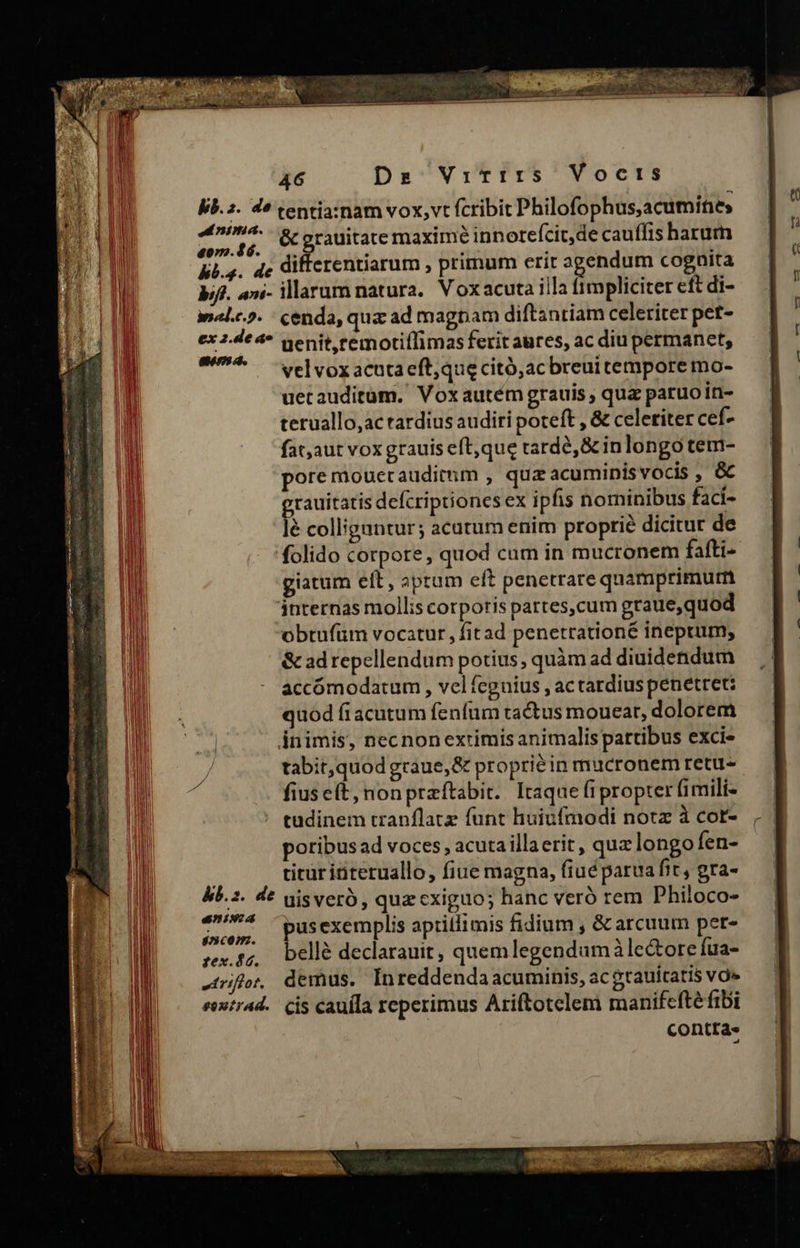 46 De Vitiis Vocis
lib.2. de tentia:nam vox,vt ſcribit Philoſophus,acumine,
anima. & grauitate maximè innoteſcit,de cauſſis harum
com.86. differentiarum , primum erit agendum cognita
lib.4. de
hiſt. ani- illarum natura. Vox acuta illa ſimpliciter eſt di-
mal.c.9. cenda, quæ ad magnam diſtantiam celeriter per-
ex 2.de a- uenit,remotiſſimas ferit aures, ac diu permanet,
nima. vel vox acuta eſt,quę citò,ac breui tempore mo-
uet auditum. Vox autem grauis, quæ paruo in-
teruallo,ac tardius audiri poteſt , & celeriter ceſ-
ſat,aut vox grauis eſt,quę tardè,& in longo tem-
pore mouet auditum , quæ acuminis vocis , &
grauitatis deſcriptiones ex ipſis nominibus faci-
lè colliguntur; acutum enim propriè dicitur de
ſolido corpore, quod cum in mucronem faſti-
giatum eſt, aptum eſt penetrare quamprimum
internas mollis corporis partes,cum graue,quod
obtuſum vocatur, ſit ad penetrationé ineptum,
& ad repellendum potius, quàm ad diuidendum
accómodatum , vel ſegnius , ac tardius penetret:
quod ſi acutum ſenſum tactus moueat, dolorem
inimis, necnon extimis animalis partibus exci-
tabit,quod graue,& propriè in mucronem retu-
ſius eſt, non præſtabit. Itaque ſi propter ſimili-
tudinem tranſlatæ ſunt huiuſmodi notæ à cor-
poribus ad voces, acuta illa erit, quæ longo ſen-
titur interuallo, ſiue magna, ſiue parua fit, gra-
lib.2. de uis verò, quæ exiguo; hanc verò rem Philoco-
anima pus exemplis aptiſſimis fidium , & arcuum per-
incom.
tex.86. bellè declarauit, quem legendum à lectore ſua-
Ariſtot. demus. In reddenda acuminis, ac grauitatis vo-
contrad. cis cauſſa reperimus Ariſtotelem manifeſtè ſibi
contra-